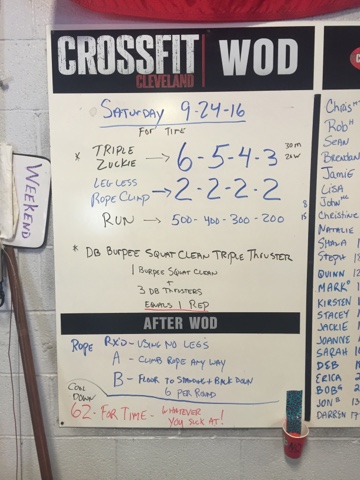 CROSSFIT
CLEVELAND
WOD
SATURDAY 9-24-16
FOR TIME
* TRIPLE ZUCKIE → 6-5-4-3 30M 20W
LEGLESS ROPE CLIMB → 2-2-2-2
RUN → 500-400-300-200
* DB BURPEE SQUAT CLEAN TRIPLE THRUSTER
1 BURPEE SQUAT CLEAN
+
3 DB THRUSTERS
EQUALS 1 REP
AFTER WOD
ROPE RX'D - USING NO LEGS
A - CLIMB ROPE ANY WAY
B - FLOOR TO STANDING & BACK DOWN
6 PER ROUND
COOL DOWN
62 - FOR TIME - WHATEVER
YOU SUCK AT!
WEEKEND
CHRIS
ROB
SEAN
BRENDAN
JAMIE
LISA
JOHN
CHRISTINE
NATALIE
SHANA
STEPH
QUINN 12
MARK
KIRSTEN
STACEY
JACKIE
JOANNE
SARAH
DSB
ERICA 2
BOB
JON 13
DARREN 17